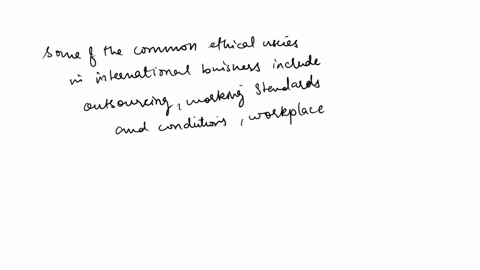 some of the common ethical issues
in international business include
outsourcing, working standards
and conditions, workplace